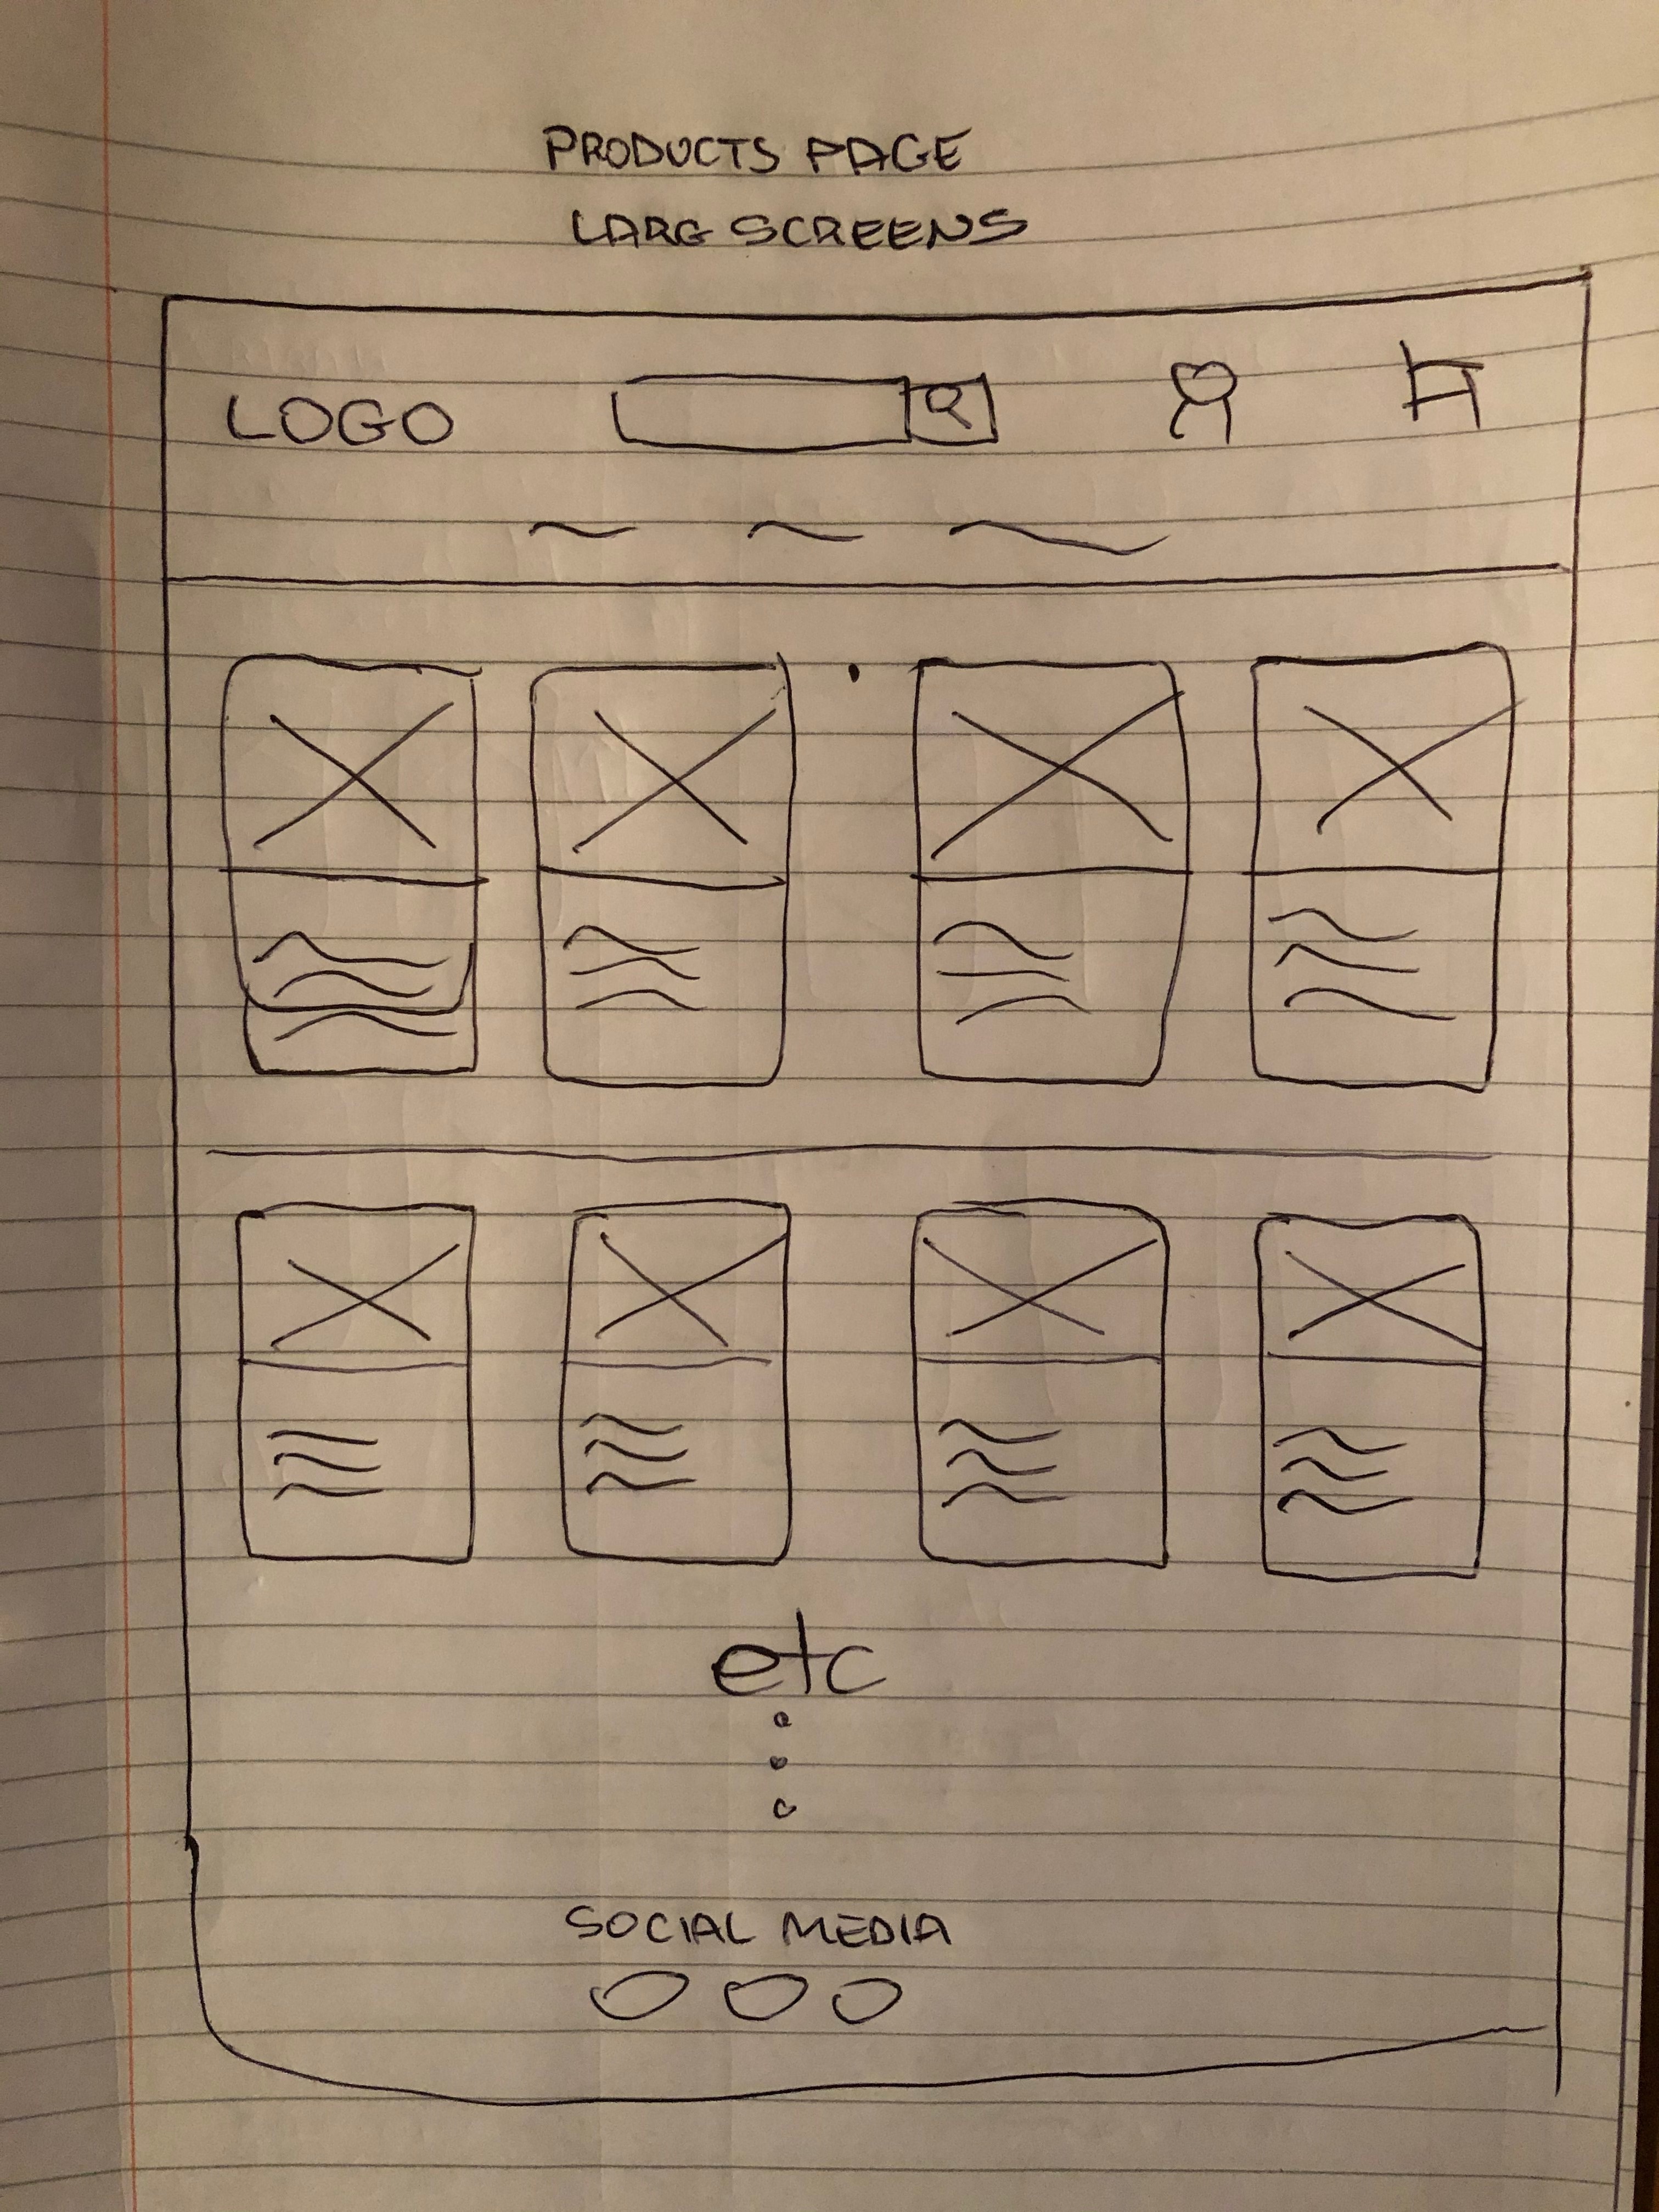 PRODUCTS PAGE
LARG SCREENS
LOGO
etc
SOCIAL MEDIA